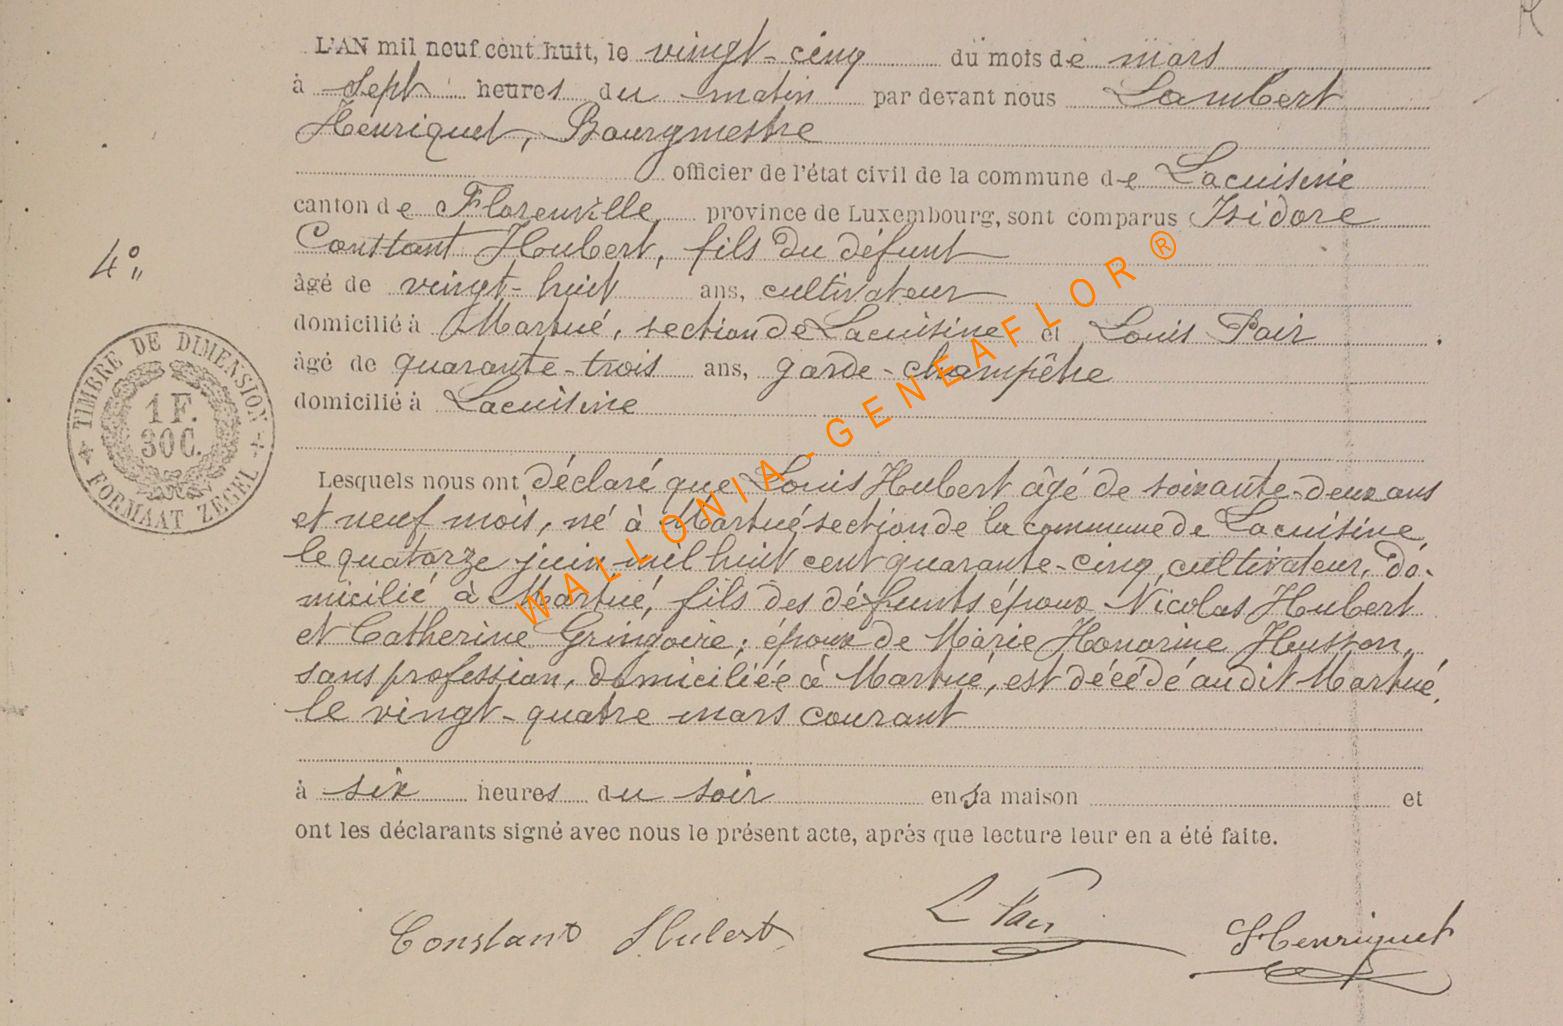 L'AN mil neuf cent huit, le vingt-cinq du mois de mars
à sept heures du matin par devant nous Lambert
Henriquet, Bourgmestre
officier de l'état civil de la commune de Lacuisine
canton de Florenville, province de Luxembourg, sont comparus Isidore
Constant Hubert, fils du défunt
4°
âgé de vingt-huit ans, cultivateur
domicilié à Martué, section de Lacuisine et Louis Pair
âgé de quarante-trois ans, garde-champêtre
domicilié à Lacuisine
TIMBRE DE DIMENSION
1 F.
30 C.
FORMAAT ZEGEL
Lesquels nous ont déclaré que Louis Hubert âgé de soixante-deux ans
et neuf mois, né à Martué section de la commune de Lacuisine,
le quatorze juin mil huit cent quarante-cinq, cultivateur, do-
micilié à Martué, fils des défunts époux Nicolas Hubert
et Catherine Gringoire; époux de Marie Honorine Husson,
sans profession, domiciliée à Martué, est décédé audit Martué,
le vingt-quatre mars courant
à six heures du soir en sa maison et
ont les déclarants signé avec nous le présent acte, après que lecture leur en a été faite.
Constant Hubert L Pair Henriquet
WALLONIA-GENEAFLOR®